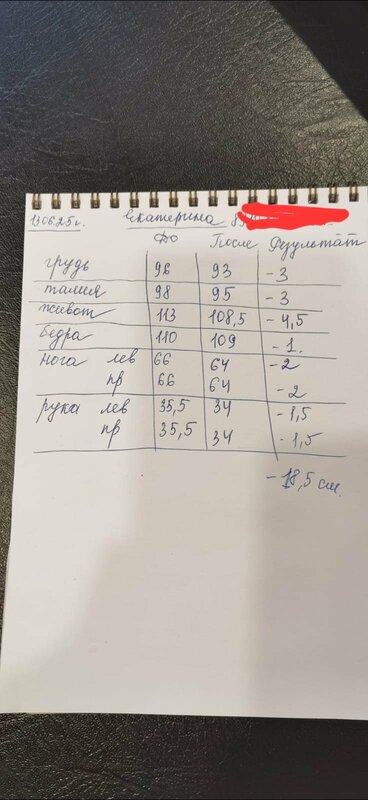 13.06.25г. Екатерина 89
До После Результат
грудь 96 93 -3
талия 98 95 -3
живот 113 108,5 -4,5
бедра 110 109 -1.
нога лев 66 64 -2
пр 66 64 -2
рука лев 35,5 34 -1,5
пр 35,5 34 -1,5
-18,5 см.